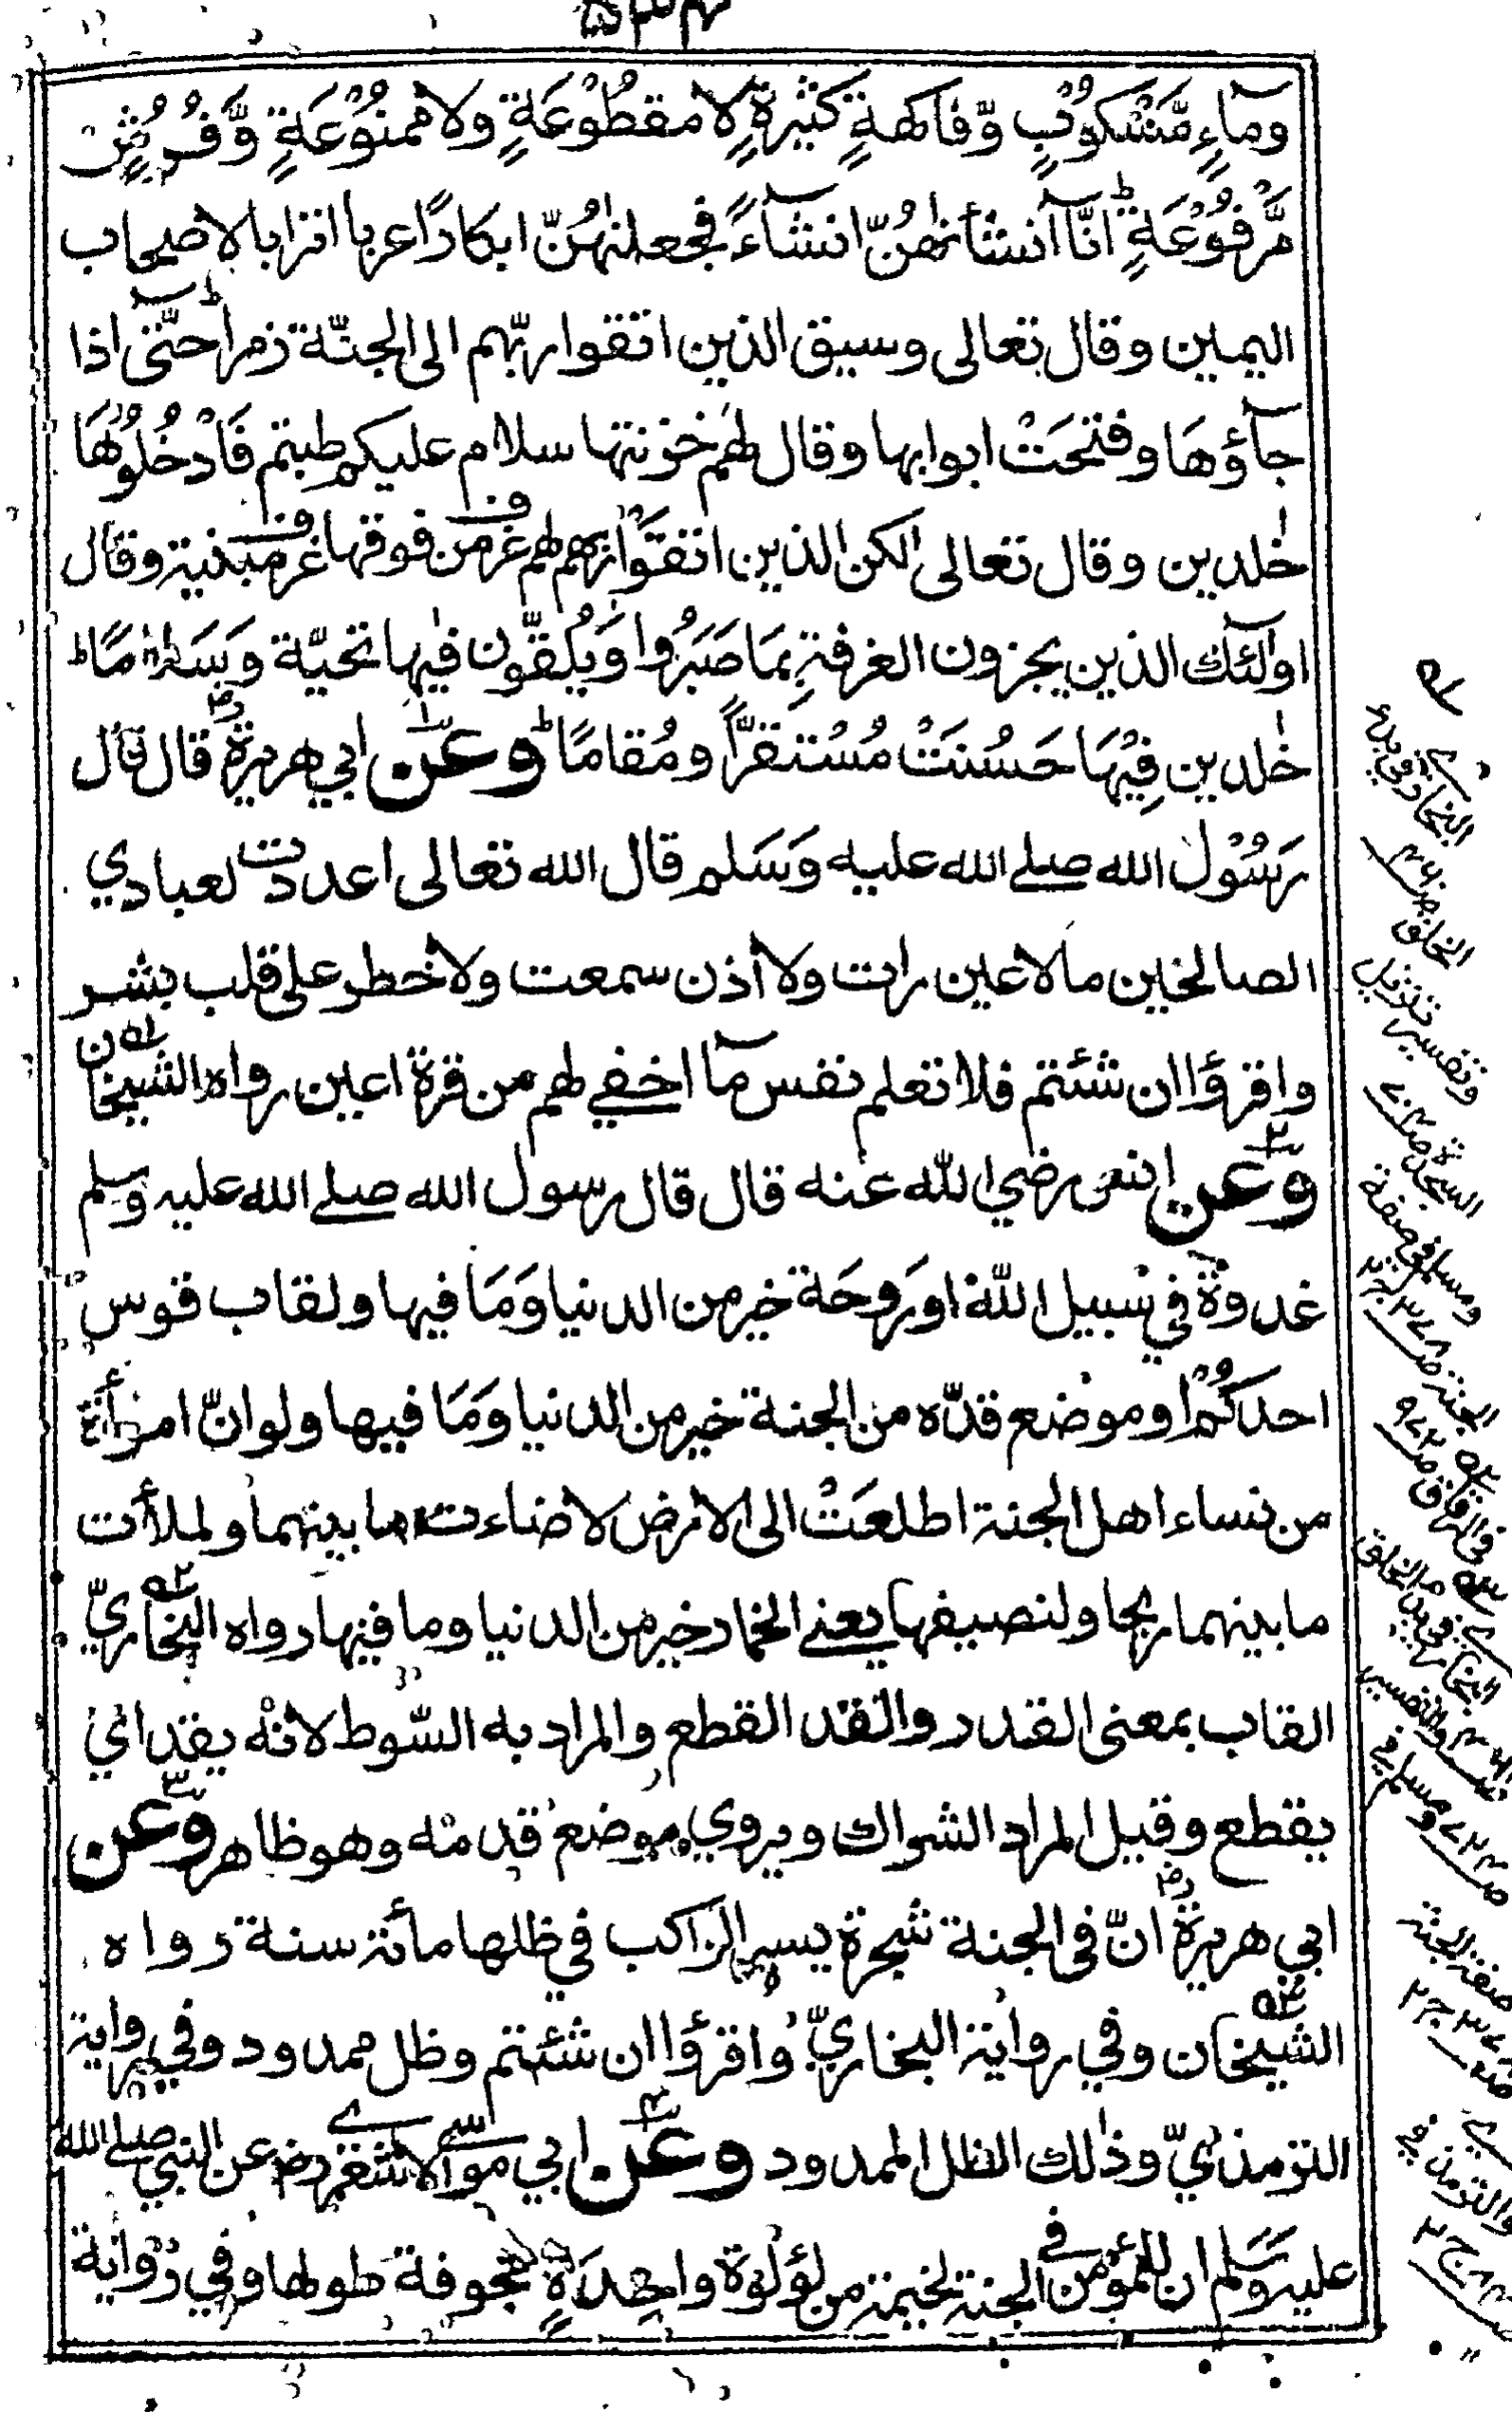 ۵۳۴
ومآءٍ مَّسْكُوبٍ وَّفاكهةٍ كثيرةٍ لا مقطُوْعَةٍ ولا ممنُوْعَةٍ وَّفُرُشٍ
مَّرْفُوْعَةٍ انّآ انشأنٰهُنّ انشآءً فجعلنٰهُنّ ابكارًا عربا اترابا لاصحاب
اليمين وقال تعالى وسيق الذين اتقوا ربّهم الى الجنّة زمرا حتّى اذا
جآؤهَا وفتحَتْ ابوابها وقال لهم خزنتها سلام عليكم طبتم فَادْخُلُوْهَا
خٰلدين وقال تعالى لكن الذين اتقَوْا ربهم لهم غرف من فوقها غرف مبنية وقال
اولٓئك الذين يجزون الغرفةِ بمَا صَبَرُوا وَيُلقّون فيها تحيّة وَسَلٰمًا
خٰلدين فِيْهَا حَسُنَتْ مُسْتقرًّا ومُقامًا وعن ابي هريرة رض قال قال
رَسُوْل الله صلے الله عليه وَسَلم قال الله تعالى اعددت لعبادي
الصالحين ما لا عين رات ولا أذن سمعت ولا خطر على قلب بشر
واقرؤا ان شئتم فلا تعلم نفس مآ اخفے لهم من قرة اعين رواه الشيخان
وعن انس رضي الله عنه قال قال رسول الله صلے الله عليه وسلم
غدوة في سبيل الله او رَوحَة خير من الدنيا وَمَا فيها ولقاب قوس
احدكُمْ او موضع قدّه من الجنة خير من الدنيا وَمَا فيها ولو انّ امرأة
من نساء اهل الجنة اطلعَتْ الى الارض لاضاءت ما بينهما ولملأت
ما بينهما ريحا ولنصيفها يعنے الخمار خير من الدنيا وما فيها رواه البخاريّ
القاب بمعنى القدر والقد القطع والمراد به السّوط لانّه يقد اي
يقطع وقيل المراد الشراك ويروي موضع قدمه وهو ظاهر وعن
ابي هريرة رض انّ في الجنة شجرة يسير الراكب في ظلها مأئة سنة رواه
الشيخان وفي رواية البخاريّ واقرؤا ان شئتم وظل ممدود وفي رواية
الترمذيّ وذٰلك الظل الممدود وعن ابي موسے الاشعرے رض عن النبي صلے الله
عليه وسلم ان للمؤمن في الجنة لخيمة من لؤلؤة واحِدَةٍ مجوفة طولها وفي رواية
البخاري في بدء
الخلق ص۴۶۰
وتفسير تنزيل
السجدة ص۷۰۴
ومسلم في صفة
الجنة ص۳۷۸ ج۲
في الرقاق ص۹۷۲
البخاري في بدء الخلق
والتفسير
ص۷۲۴ ومسلم في
صفة الجنة
والترمذي في